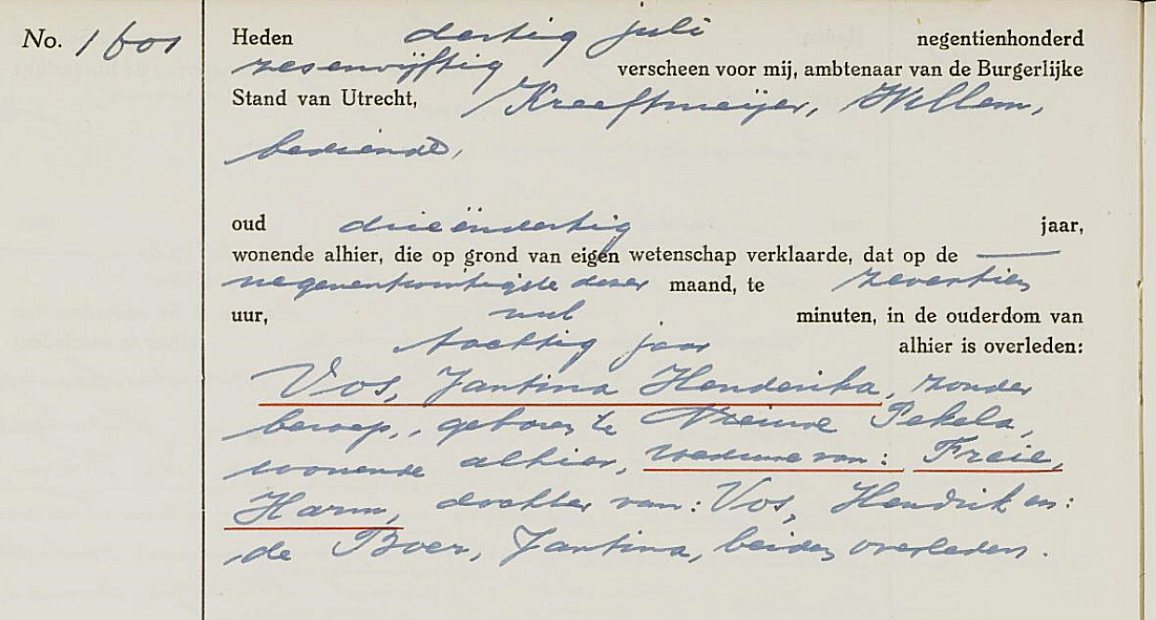 No. 1601
Heden dertig juli negentienhonderd
zesenvijftig verscheen voor mij, ambtenaar van de Burgerlijke
Stand van Utrecht, Kreeftmeijer, Willem,
bediende,
oud drieëndertig jaar,
wonende alhier, die op grond van eigen wetenschap verklaarde, dat op de
negenentwintigste dezer maand, te zeventien
uur, nul minuten, in de ouderdom van
tachtig jaar alhier is overleden:
Vos, Jantina Henderika, zonder
beroep, geboren te Nieuwe Pekela,
wonende alhier, weduwe van: Freie,
Harm, dochter van: Vos, Hendrik en:
de Boer, Jantina, beiden overleden.